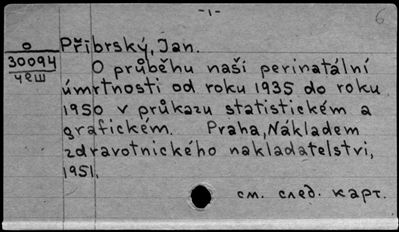 -1-
6
O
30094
чеш
Příbrský, Jan.
O průběhu naší perinatální
úmrtnosti od roku 1935 do roku
1950 v průkazu statistickém a
grafickém. Praha, Nákladem
zdravotnického nakladatelstvi,
1951.
см. след. карт.